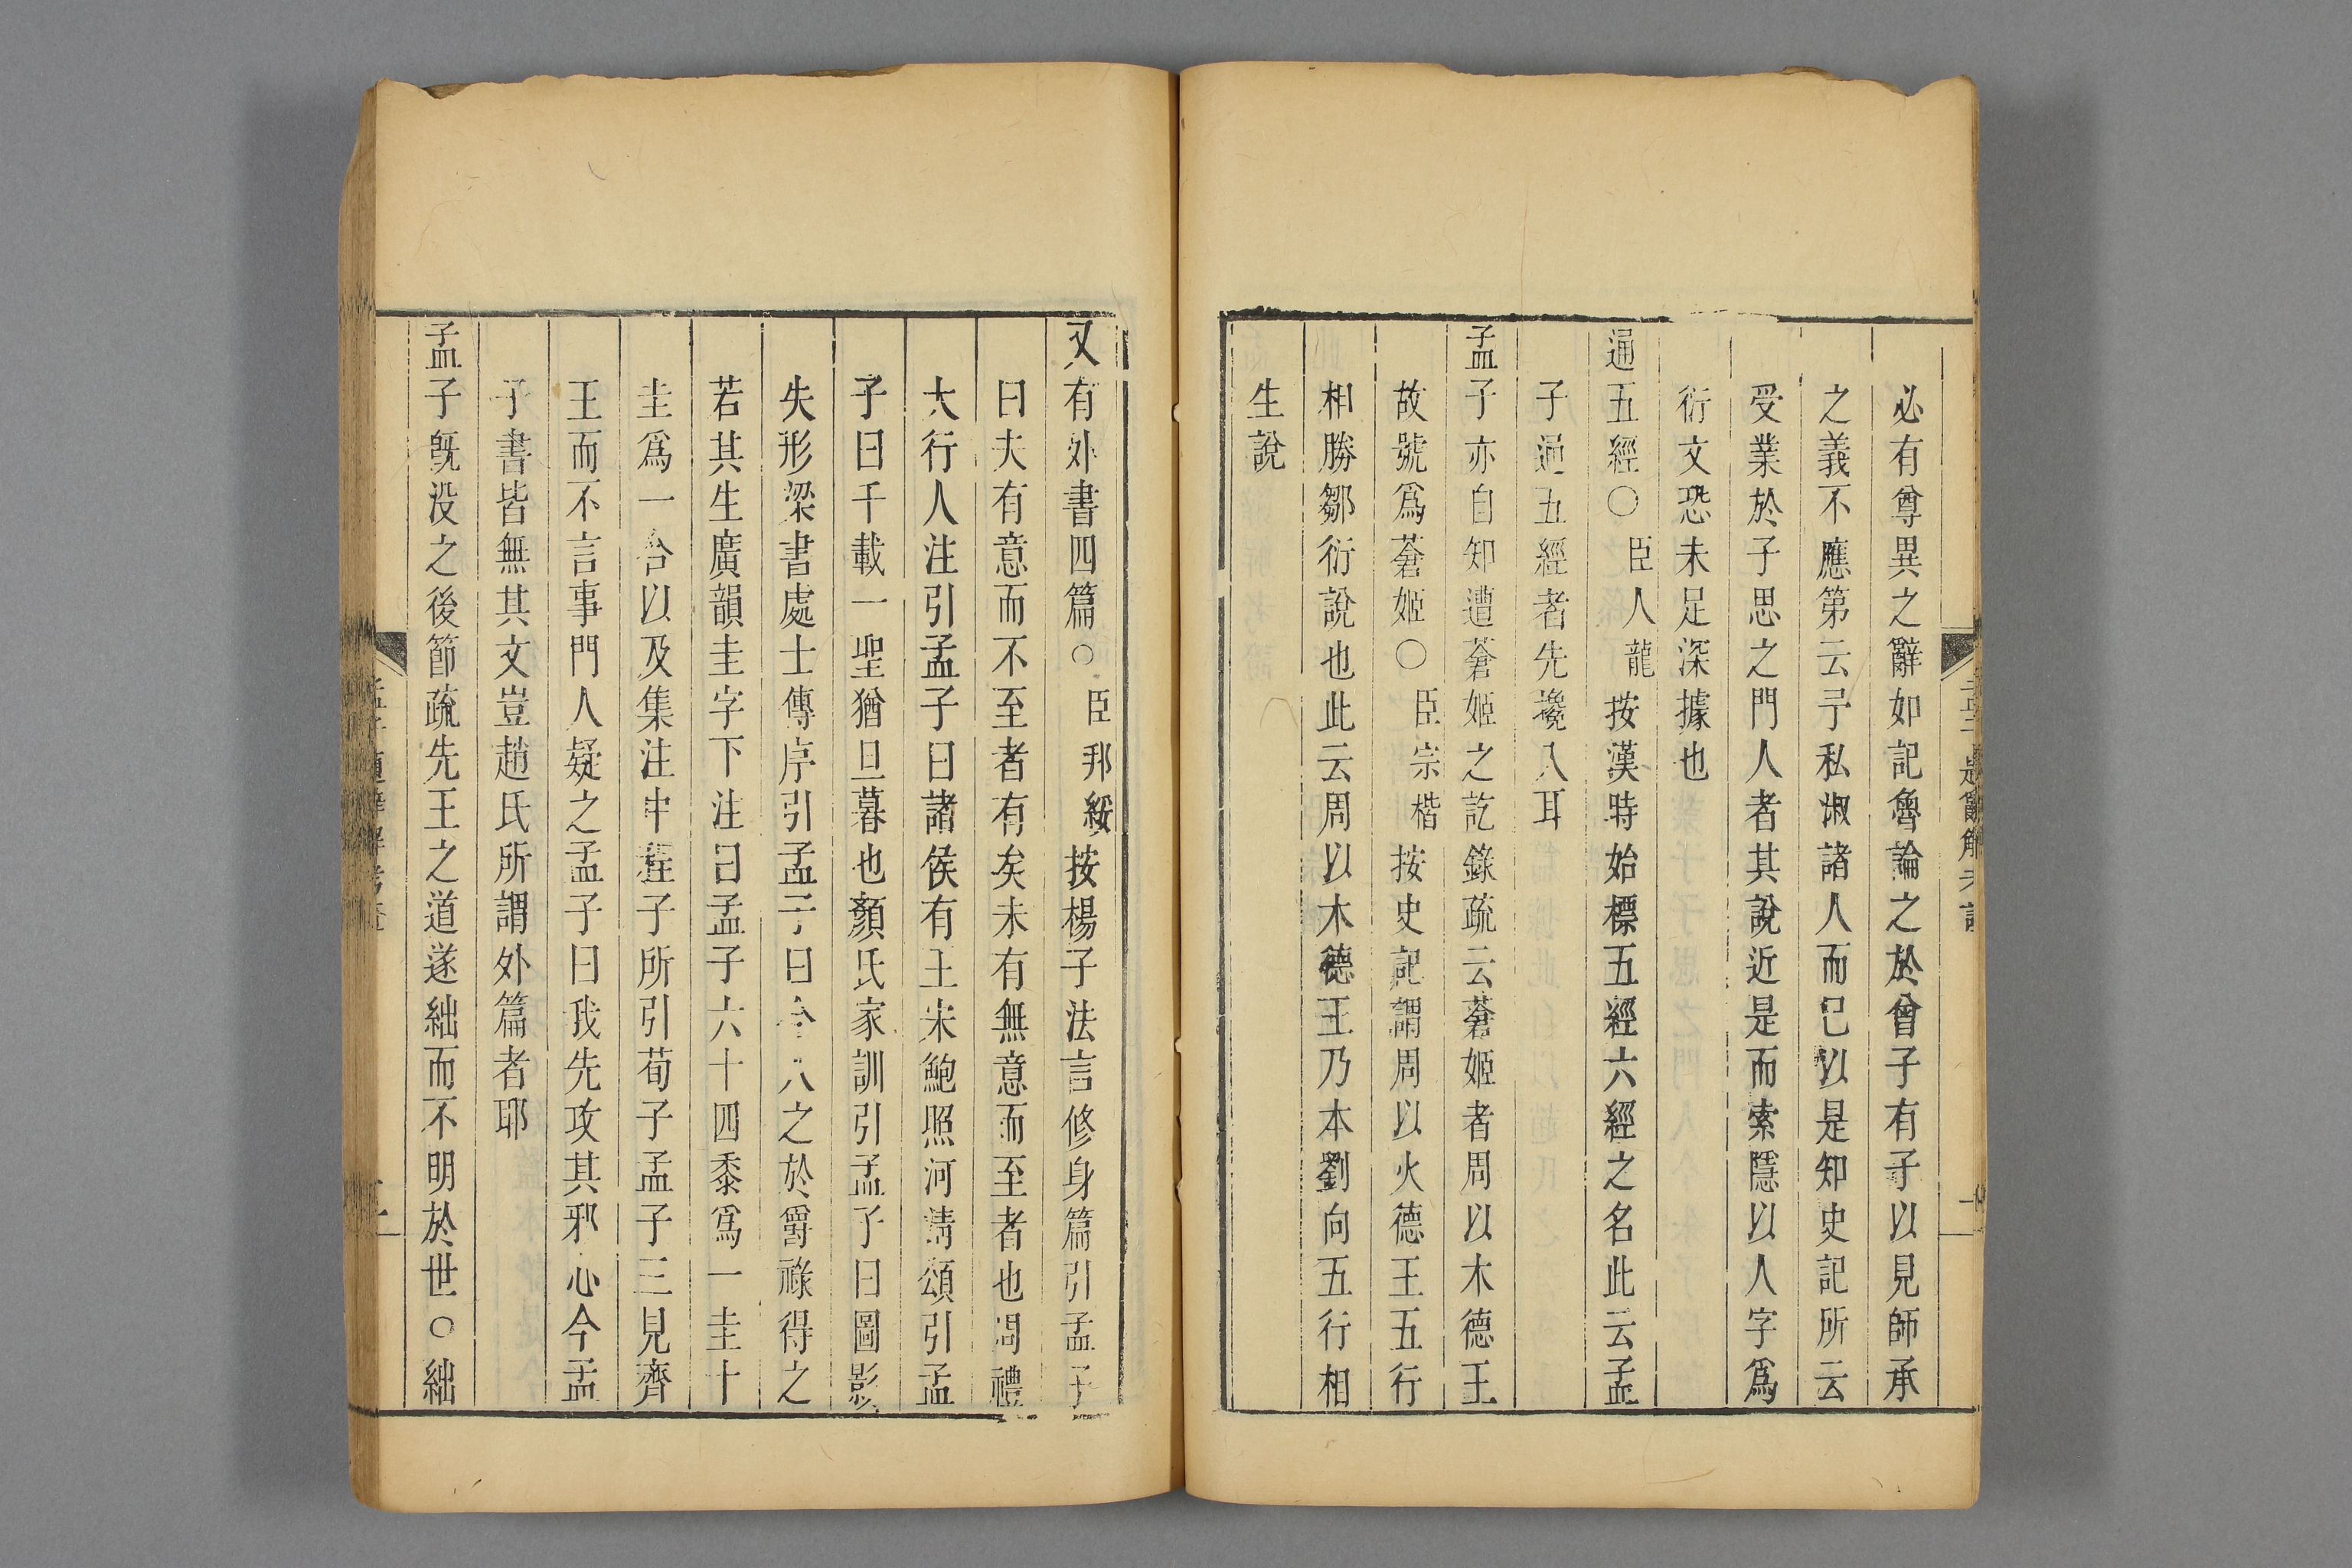 必有尊異之辭如記魯論之於曾子有子以見師承
之義不應第云予私淑諸人而已以是知史記所云
受業於子思之門人者其說近是而索隱以人字爲
衍文恐未足深據也
通五經○臣人龍按漢時始標五經六經之名此云孟
子通五經者先攙入耳
孟子亦自知遭蒼姬之訖錄疏云蒼姬者周以木德王
故號爲蒼姬○臣宗楷按史記謂周以火德王五行
相勝鄒衍說也此云周以木德王乃本劉向五行相
生說
又有外書四篇○臣邦綏按楊子法言修身篇引孟子
曰夫有意而不至者有矣未有無意而至者也周禮
大行人注引孟子曰諸侯有王宋鮑照河淸頌引孟
子曰千載一聖猶旦暮也顏氏家訓引孟子曰圖影
失形梁書處士傳序引孟子曰今人之於爵祿得之
若其生廣韻圭字下注曰孟子六十四黍爲一圭十
圭爲一合以及集注中程子所引荀子孟子三見齊
王而不言事門人疑之孟子曰我先攻其邪心今孟
子書皆無其文豈趙氏所謂外篇者耶
孟子旣没之後節疏先王之道遂絀而不明於世○絀